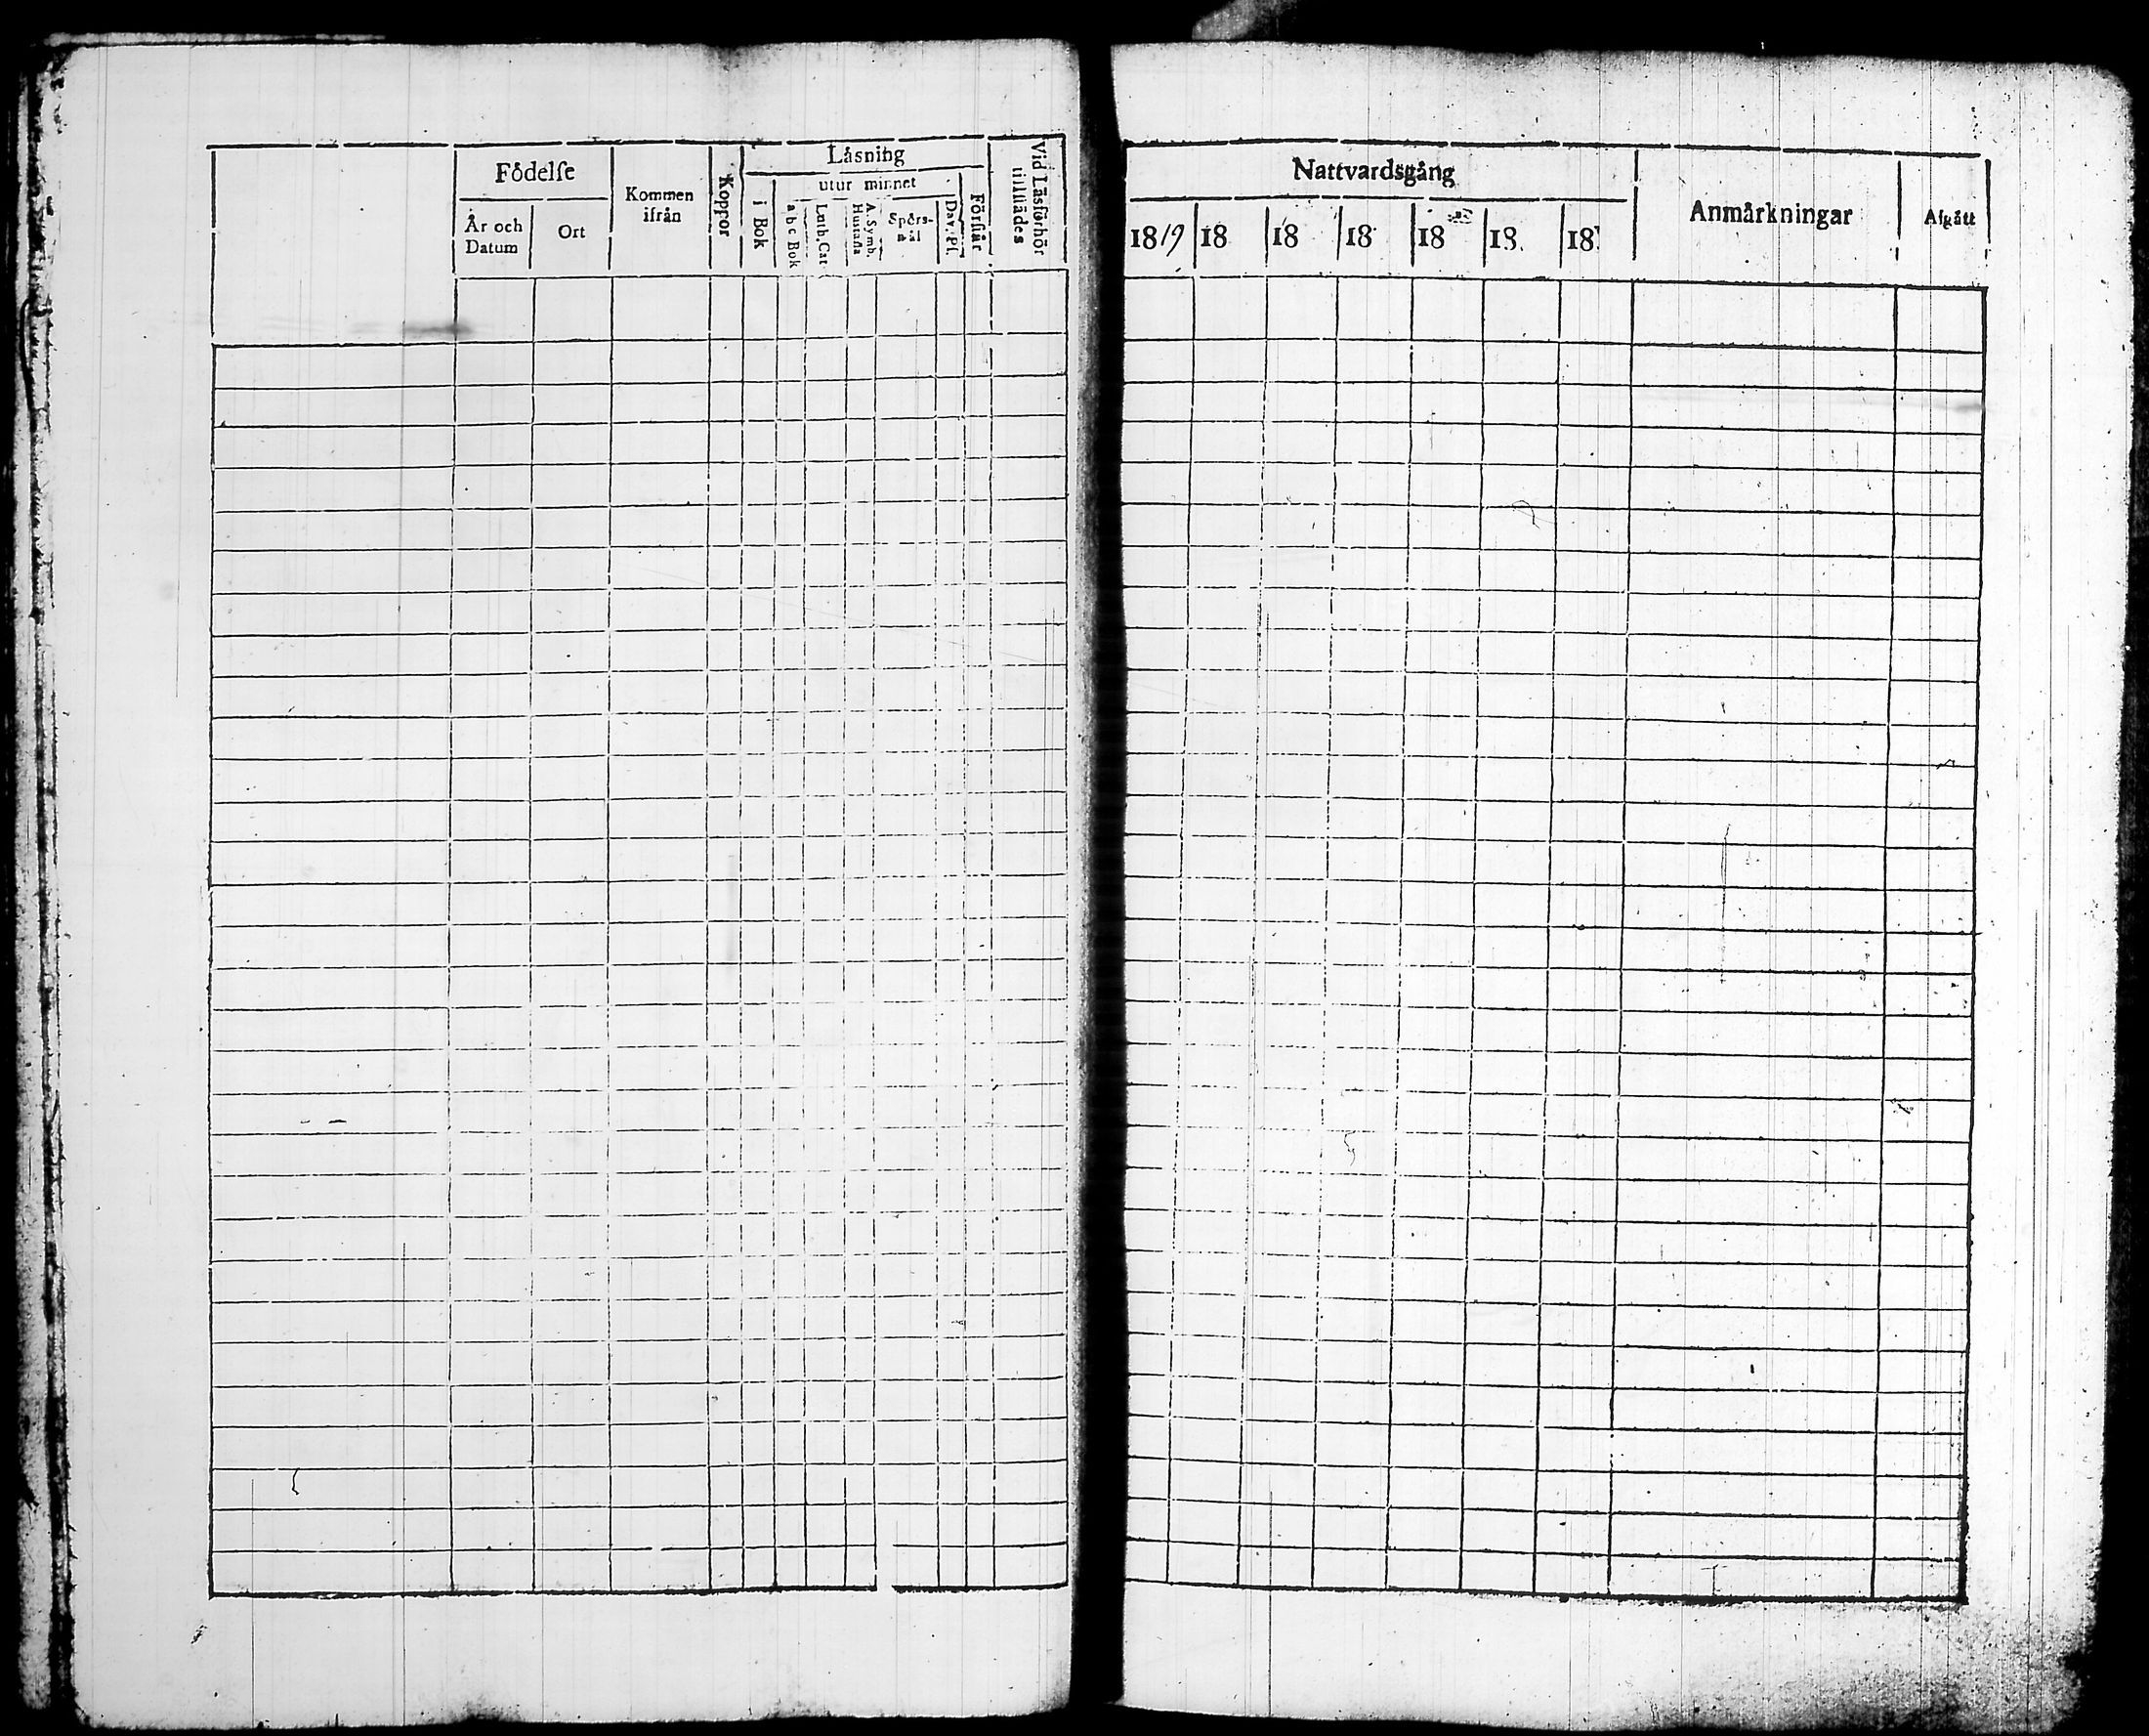 Födelse
År och Datum
Ort
Kommen ifrån
Koppor
Läsning
i Bok
utur minnet
a b c Bok
Luth. Cat
A. Symb. Hustafla
Spörs-mål
Dav. Ps.
Förstår
Vid Läsförhör tillstädes
Nattvardsgång
1819 18 18 18 18 18. 18
Anmärkningar
Afgått